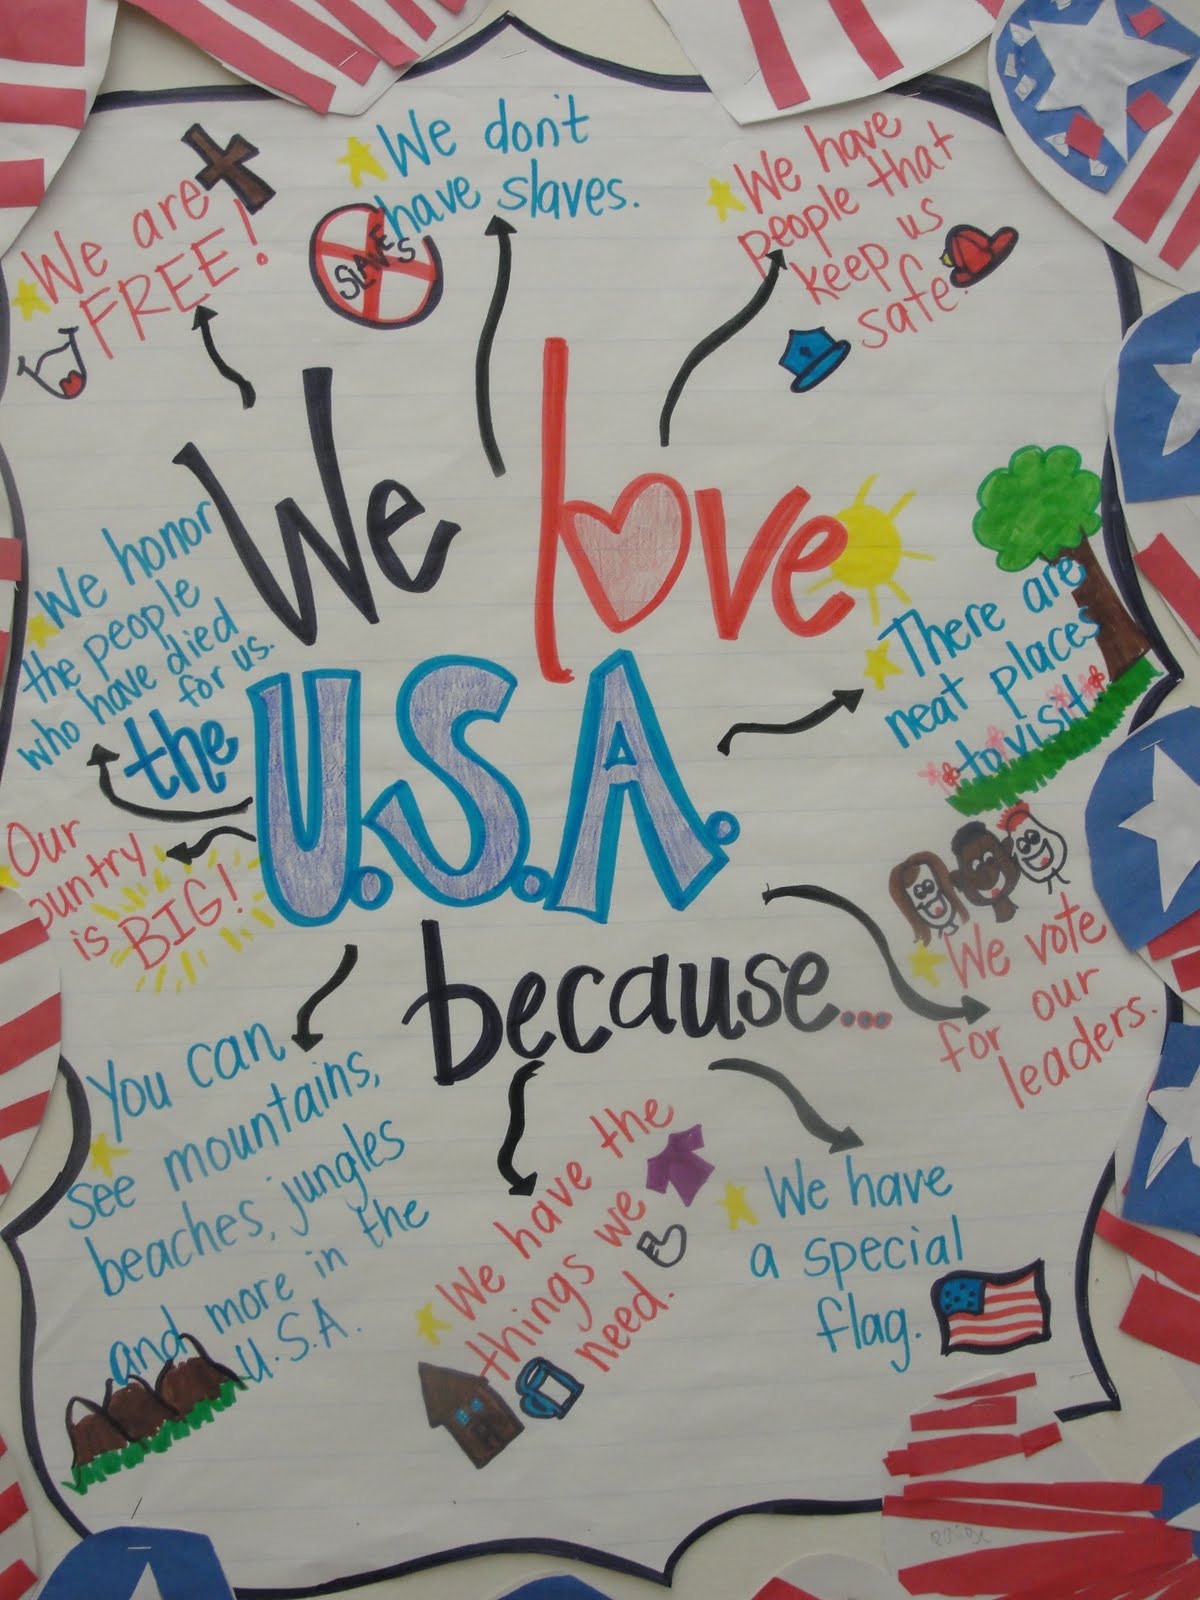 We are
FREE!
We don't
have slaves.
SLAVES
We have
people that
keep us
safe.
We love
the U.S.A.
because...
We honor
the people
who have died
for us.
There are
neat places
to visit.
Our
country
is BIG!
We vote
for our
leaders.
You can
see mountains,
beaches, jungles
and more in the
U.S.A.
We have the
things we
need.
We have
a special
flag.